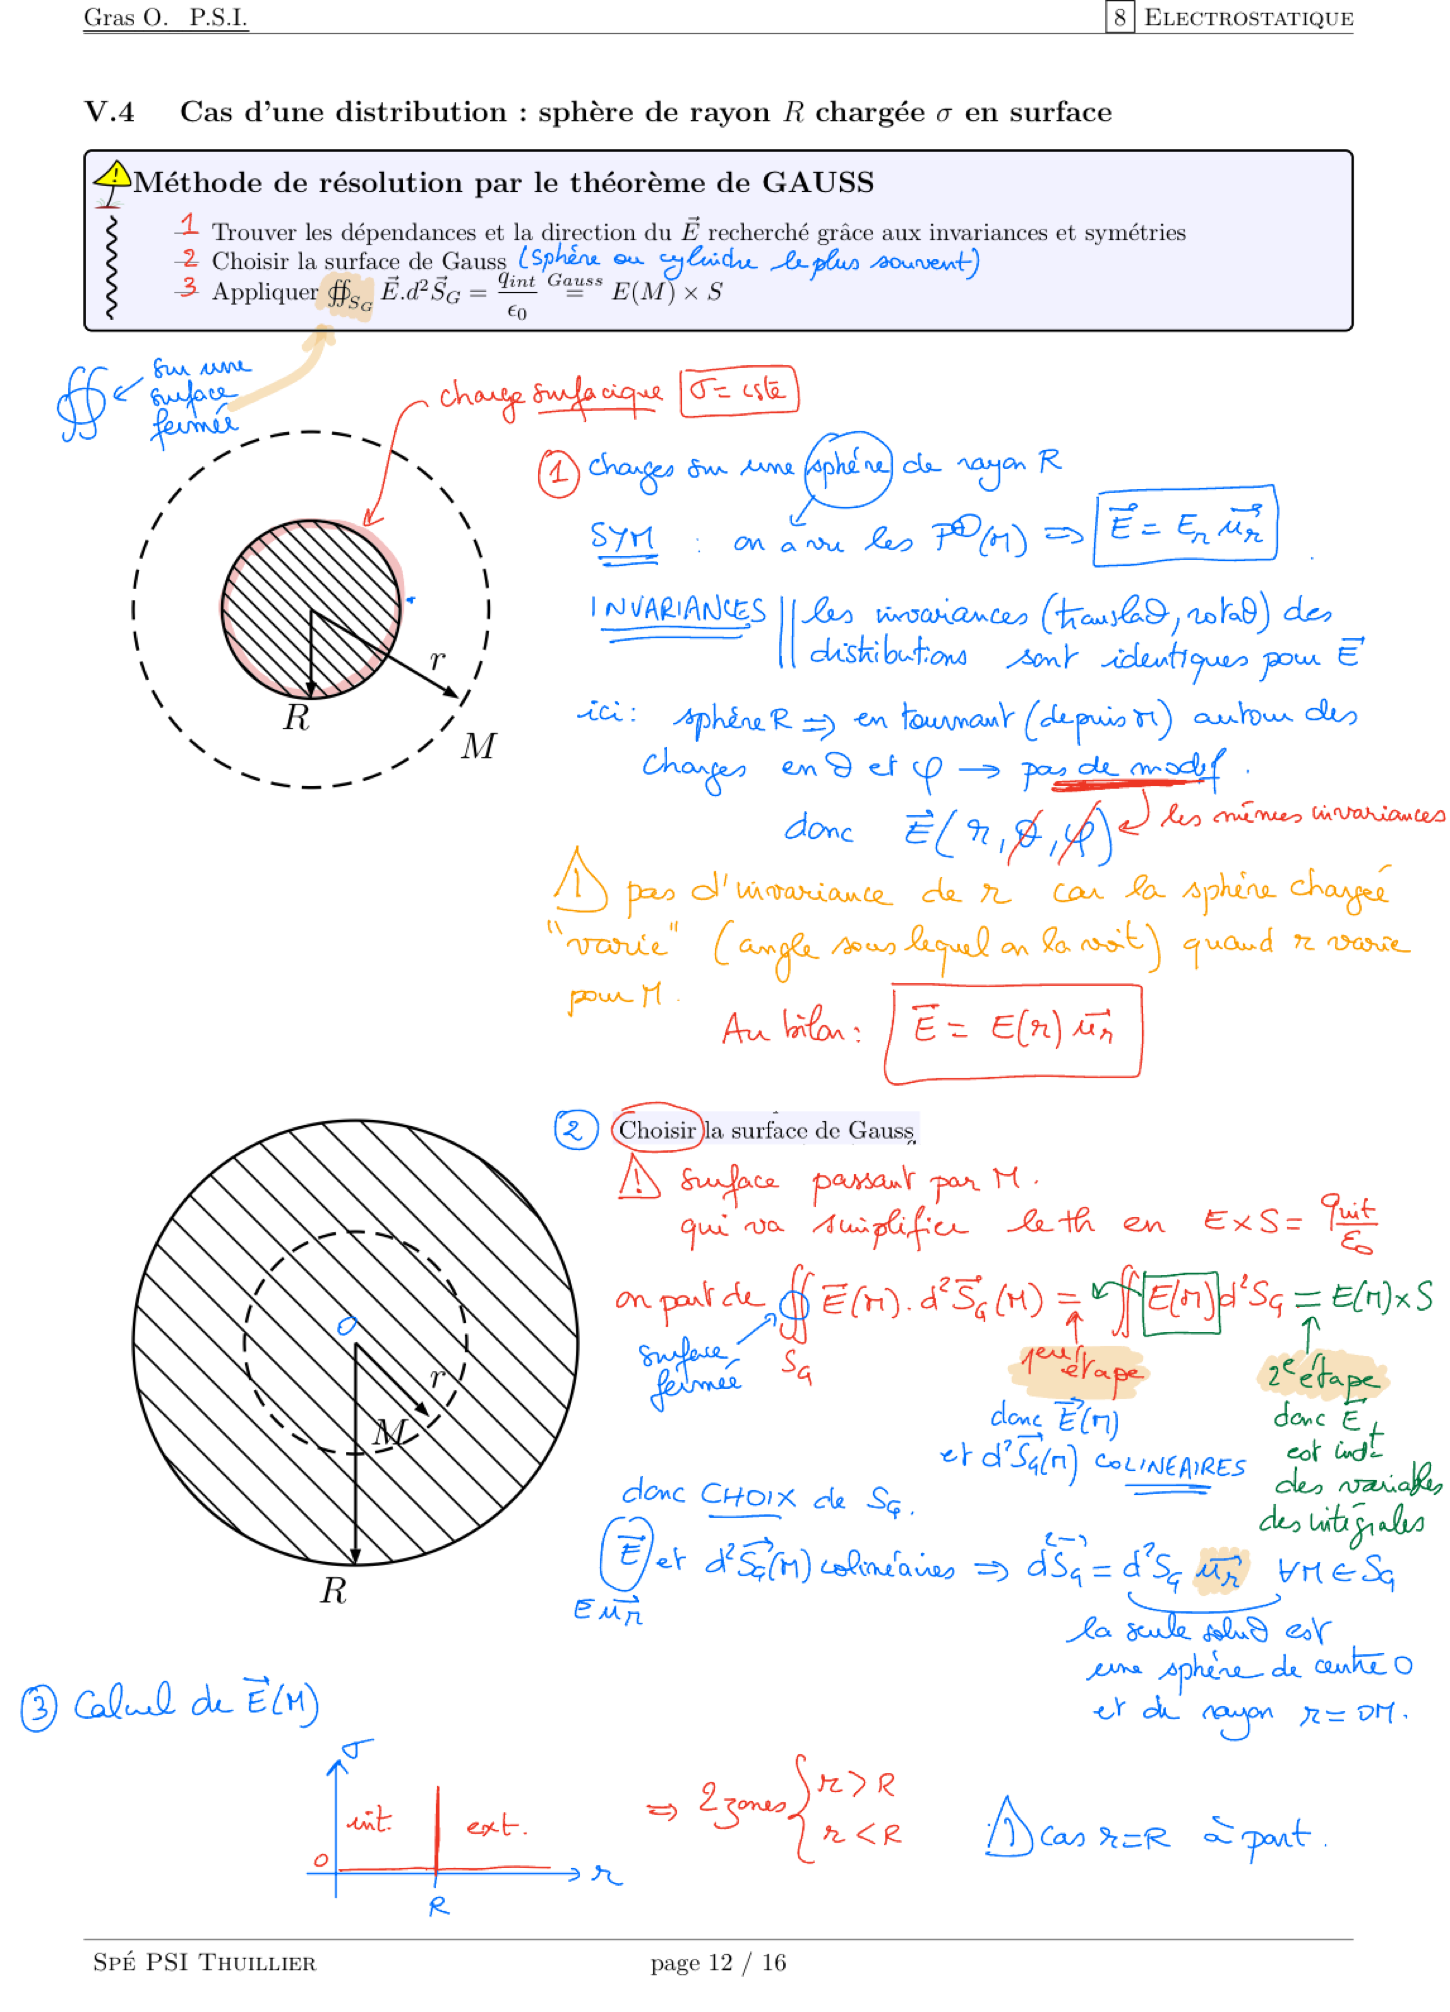 Gras O. P.S.I.
8 ELECTROSTATIQUE
V.4 Cas d'une distribution : sphère de rayon R chargée σ en surface
Méthode de résolution par le théorème de GAUSS
1 Trouver les dépendances et la direction du \vec{E} recherché grâce aux invariances et symétries
2 Choisir la surface de Gauss (sphère ou cylindre le plus souvent)
3 Appliquer ∯_{S_G} \vec{E}.d²\vec{S}_G = q_{int}/ϵ_0 \overset{Gauss}{=} E(M) × S
∯ ← sur une
surface
fermée
charge surfacique σ = cste
R
r
M
1 charges sur une sphère de rayon R
SYM : on a vu les P^⊕(M) ⇒ \vec{E} = E_r \vec{u_r}
INVARIANCES || les invariances (translaθ, rotaθ) des
distributions sont identiques pour \vec{E}
ici : sphère R ⇒ en tournant (depuis M) autour des
charges en θ et φ → pas de modif.
donc \vec{E}(r, θ, φ) ← les mêmes invariances
! pas d'invariance de r car la sphère chargée
"varie" (angle sous lequel on la voit) quand r varie
pour M.
Au bilan : \vec{E} = E(r) \vec{u_r}
2 Choisir la surface de Gauss
! surface passant par M.
qui va simplifier le th en E×S = q_{int}/ε_0
on part de ∯_{S_G} \vec{E}(M). d²\vec{S_G}(M) = ∬ E(M) d²S_G = E(M)×S
surface
fermée
1ère étape
2e étape
donc \vec{E}(M)
et d²\vec{S_G}(M) COLINEAIRES
donc E
est indt
des variables
des intégrales
O
r
M
R
donc CHOIX de S_G.
\vec{E} et d²\vec{S_G}(M) colinéaires ⇒ d²\vec{S_G} = d²S_G \vec{u_r} ∀M ∈ S_G
E \vec{u_r}
la seule soluθ est
une sphère de centre O
et de rayon r = OM.
3 Calcul de \vec{E}(M)
σ
int. ext.
0
r
R
⇒ 2 zones { r > R
r < R
! cas r=R à part.
SPÉ PSI THUILLIER
page 12 / 16